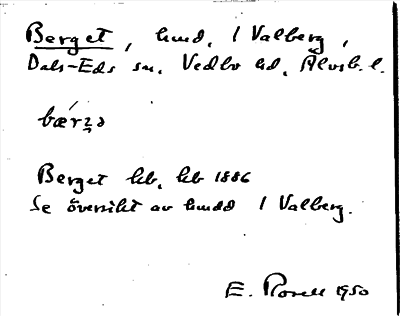 Berget, hmd. / Valberg,
Dals-Eds sn. Vedbo hd. Älvsb. l.
bǽrʒə
Berget hb. kb 1886
Se översikt av hmdd / Valberg.
E. Rosell 1950